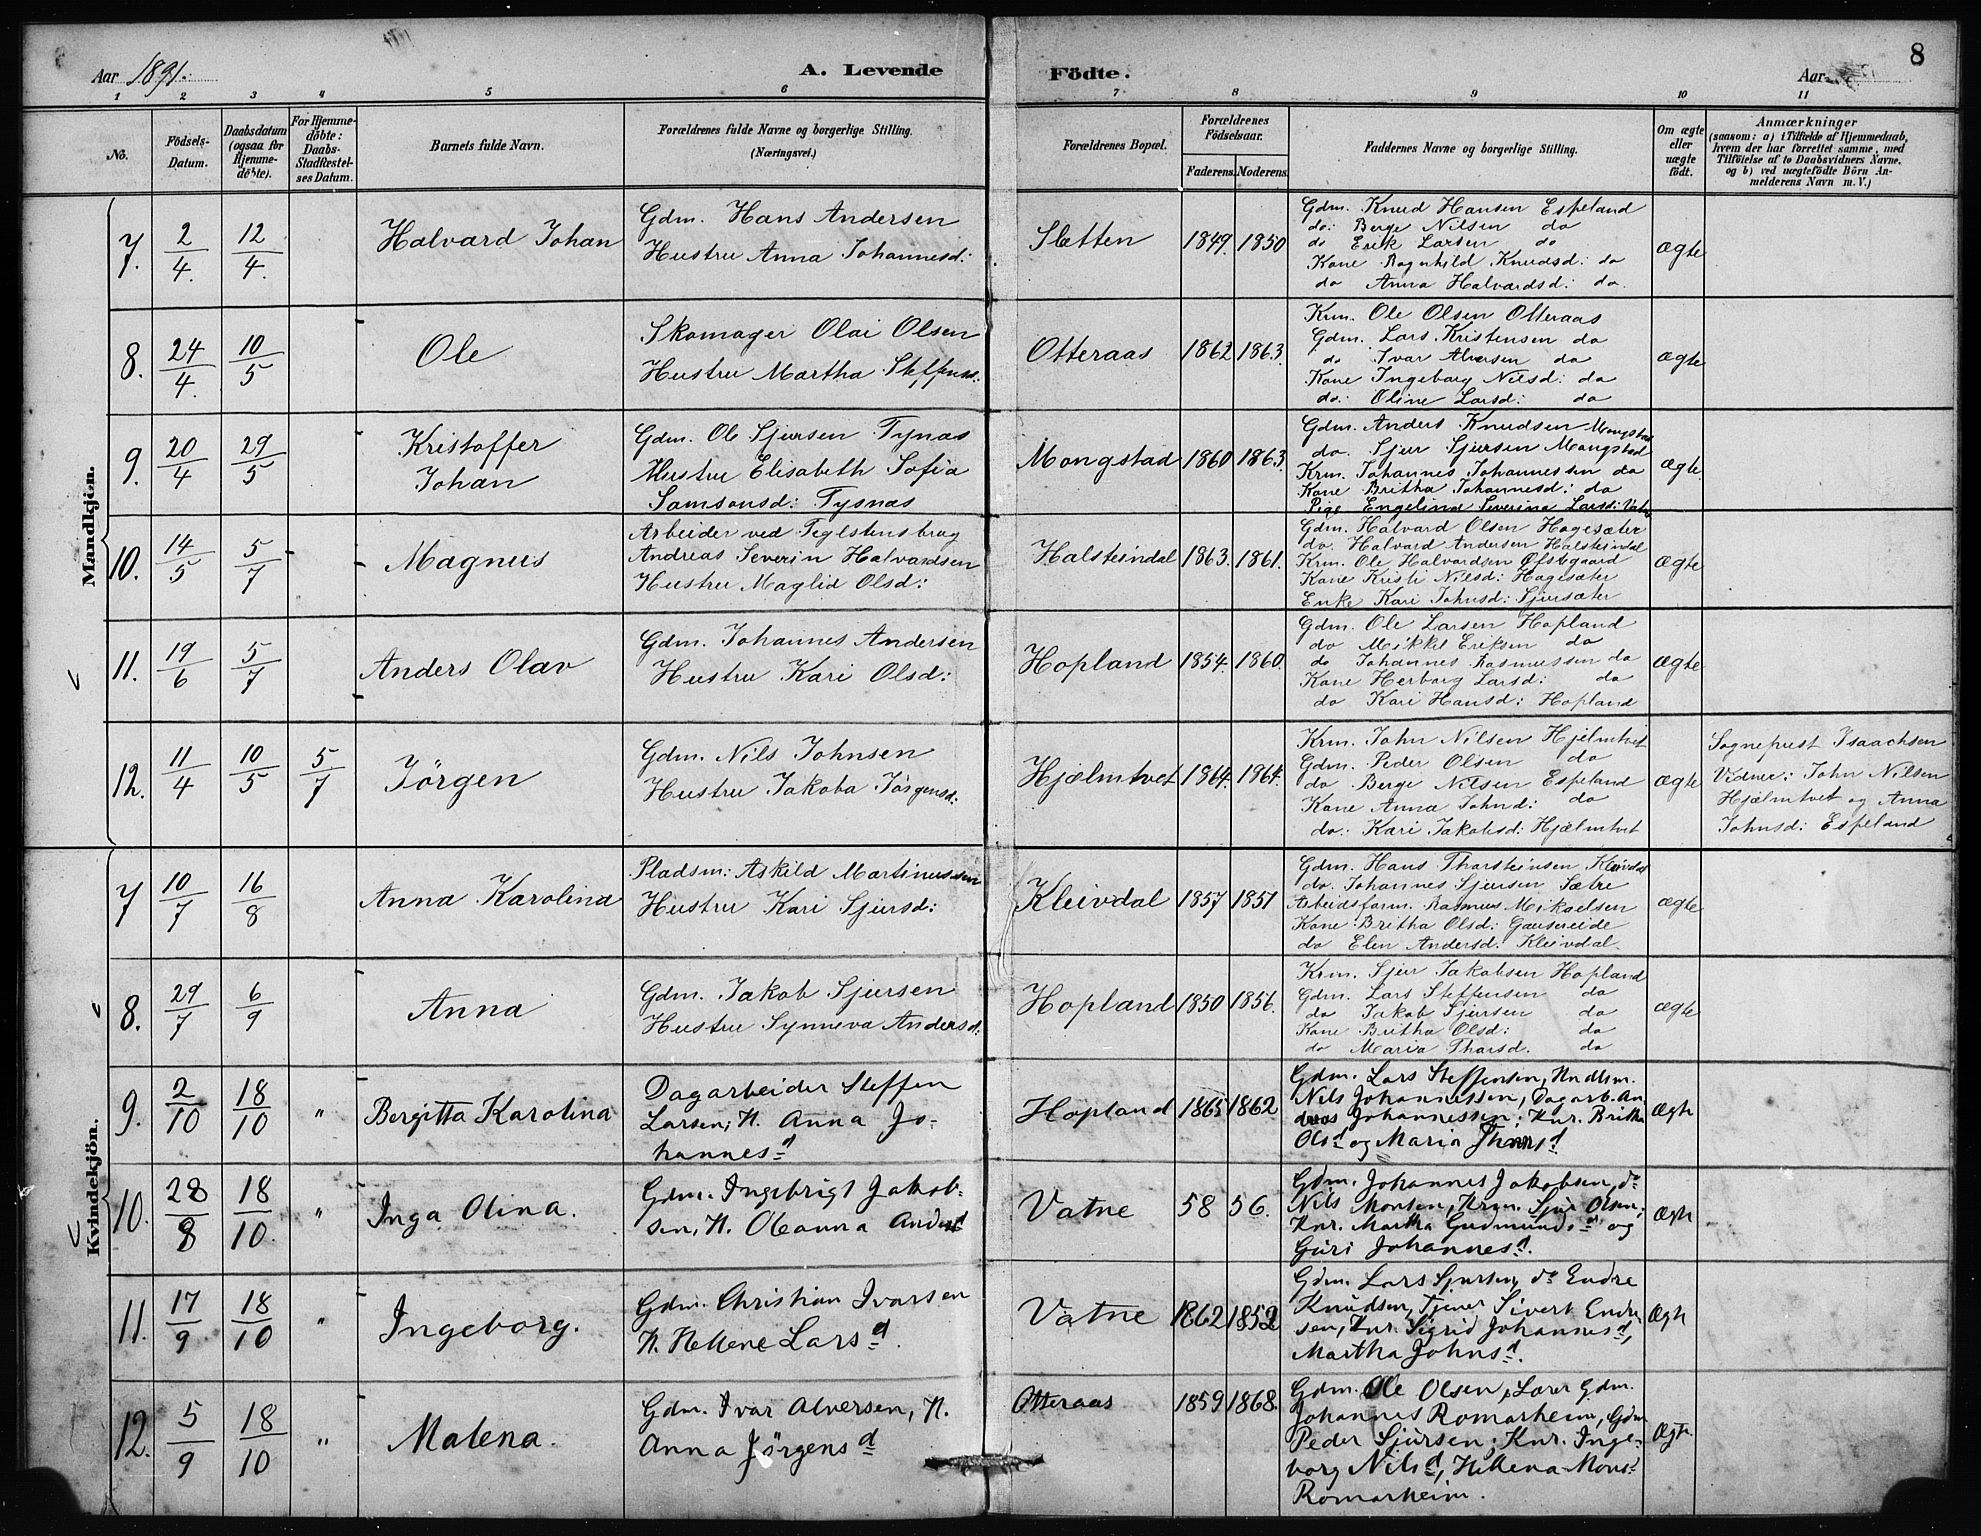 Aar 1891. A. Levende Födte. Aar 8
1 2 3 4 5 6 7 8 9 10 11
No.
Födsels-Datum.
Daabsdatum (ogsaa for Hjemmedöbte).
For Hjemmedöbte: Daabs-Stadfæstelses Datum.
Barnets fulde Navn.
Forældrenes fulde Navne og borgerlige Stilling.
(Næringsvei.)
Forældrenes Bopæl.
Forældrenes Födselsaar.
Faderens. Moderens.
Faddernes Navne og borgerlige Stilling.
Om ægte eller uægte födt.
Anmærkninger
(saasom: a) i Tilfælde af Hjemmedaab, hvem der har forrettet samme, med Tilföielse af to Daabsvidners Navne. og b) ved uægtefödte Börn Anmelderens Navn m. V.)
Mandkjön.
7. 2/4. 12/4. Halvard Johan
Gdm. Hans Andersen
Hustru Anna Johannesd:
Sletten 1849. 1850
Gdm. Knud Hansen Espeland
do: Berge Nilsen do
do Erik Larsen do
Kone Ragnhild Knudsd: do
do Anna Halvardsd: do.
ægte
8. 24/4. 10/5 Ole
Skomager Olai Olsen
Hustru Martha Steffensd.
Otteraas 1862 1863.
Krm. Ole Olsen Otteraas
Gdm. Lars Kristensen do
do Ivar Alversen do
Kone Ingeborg Nilsd: do
do: Oline Larsd: do
ægte
9. 20/4 29/5 Kristoffer
Johan
Gdm. Ole Sjursen Tynæs
Hustru Elisabeth Sofia
Samsonsd: Tysnæs
Mongstad 1860 1863.
Gdm. Anders Knudsen Mongstad
do. Sjur Sjursen Mongstad
Krm. Johannes Johannessen do
Kone Britha Johannesd: do
Pige Engelina Severina Larsd:
ægte
10. 14/5 5/7 Magnus
Arbeider ved Teglstensbrug
Andreas Severin Halvardsen
Hustru Maglid Olsd:
Halsteindal 1863. 1861.
Gdm. Halvard Olsen Hagesæter
do. Halvard Andersen Halsteindal
Krm. Ole Halvardsen Øfstegaard
Kone Kristi Nilsd: Hagesæter
Enke Kari Johnsd: Sjursæter
ægte
11. 19/6 5/7 Anders Olav
Gdm. Johannes Andersen
Hustru Kari Olsd:
Hopland 1854. 1860.
Gdm. Ole Larsen Hopland
do Mikkel Eriksen do
do Johannes Rasmussen do
Kone Herborg Larsd: do
do Kari Hansd: Hopland
ægte
12. 11/4 10/5 5/7 Jörgen
Gdm. Nils Johnsen
Hustru Jakoba Jörgensd:
Hjælmtvet 1864. 1864.
Krm. John Nilsen Hjelmtvet
Gdm. Peder Olsen do
do Berge Nilsen Espeland
Kone Anna Johnd: do
do: Kari Jakobsd: Hjælmtvet
ægte
Sognepræst Isaachsen
Vidner: John Nilsen
Hjælmtvet og Anna
Johnsd: Espeland
Kvindekjön.
7 10/7 16/8 Anna Karolina
Pladsm: Askild Martinussen
Hustru Kari Sjursd:
Kleivdal 1857 1851
Gdm. Hans Tharsteinsen Kleivdal
do. Johannes Sjursen Sætre
Arbeidsform. Rasmus Mikaelsen
Kone Britha Olsd: Gausereide
do Elen Andersd: Kleivdal.
ægte
8. 29/7 6/9 Anna
Gdm. Jakob Sjursen
Hustru Synneva Andersd.
Hopland 1850 1856.
Krm. Sjur Jakobsen Hopland
Gdm. Lars Steffensen do
do Jakob Sjursen do
Kone Britha Olsd: do
do Maria Tharsd. do
ægte
9. 2/10 18/10 " Bergitta Karolina
Dagarbeider Steffen
Larsen; H. Anna Jo-
hannesd
Hopland 1865 1862
Gdm. Lars Steffensen,
Nils Johannessen, Dagarb. An-
dreas Johannessen; Knr. Britha
Olsd og Maria
Ægte
10. 28/8 18/10. " Inga Olina.
Gdm. Ingebrigt Jakob-
sen, H. Oleanna Andersd
Vatne 58 56.
Gdm. Johannes Jakobsen, do
Nils Monsen, Krm. Sjur Olsen;
Knr. Martha Gudmundsd og
Guri Johannesd.
Ægte
11. 17/9 18/10 " Ingeborg.
Gdm. Christian Ivarsen
H. Hellene Larsd.
Vatne 1862 1852
Gdm. Lars Sjursen, do Endre
Knudsen, Tjener Sivert Endre
sen, Knr. Sigrid Johannesd,
Martha Johnsd.
Ægte
12. 5/9 18/10 " Malena.
Gdm. Ivar Alversen, H.
Anna Jörgensd
Otteraas 1859 1868.
Gdm. Ole Olsen, Lærer Gdm.
Johannes Romarheim, Gdm
Peder Sjursen; Knr. Inge-
borg Nilsd, Hellena Monsd
Romarheim.
Ægte.